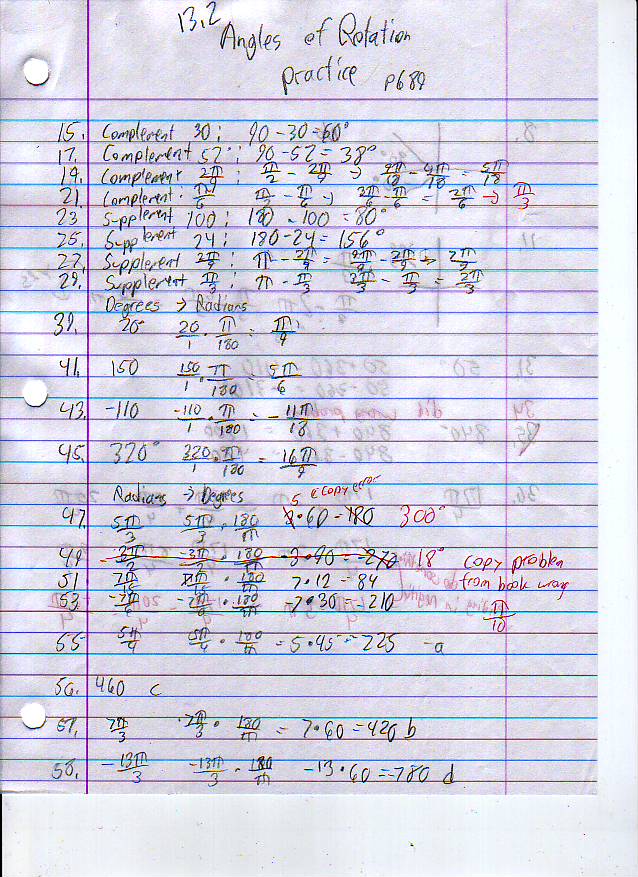 13.2
Angles of Rotation
practice p689
15. Complement 30; 90-30=60°
17. Complement 52°; 90-52=38°
19. Complement 2π/9 π/2 - 2π/9 → 9π/18 - 4π/18 = 5π/18
21. Complement π/6 π/2 - π/6 → 3π/6 - π/6 = 2π/6 → π/3
23 Supplement 100; 180-100=80°
25. Supplement 24; 180-24=156°
27. Supplement 2π/9; π - 2π/9 = 9π/9 - 2π/9 →
29. Supplement π/3; π - π/3 3π/3 - π/3 = 2π/3
Degrees → Radians
39. 20° 20/1 · π/180 = π/9
41. 150 150/1 · π/180 5π/6
43. -110 -110/1 · π/180 = -11π/18
45. 320° 320/1 · π/180 = 16π/9
Radians → Degrees 5 copy error
47. 5π/3 5π/3 · 180/π ·60 = 180 300°
49 -3π/2 -3π/2 · 180/π -3·90=-270 18° copy problem
51 7π/15 7π/15 · 180/π 7·12=84 from book wrong
53 -7π/6 -7π/6 · 180/π -7·30=-210 π/10
55 5π/4 5π/4 · 180/π = 5·45=225 -a
56. 460 c
57. 7π/3 7π/3 · 180/π = 7·60=420 b
58. -13π/3 -13π/3 · 180/π -13·60=-780 d